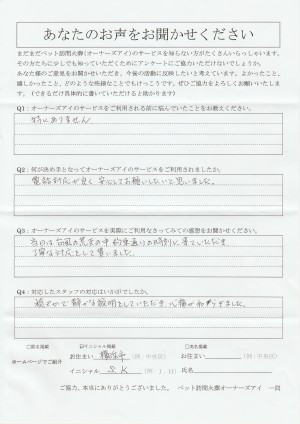 あなたのお声をお聞かせください
まだまだペット訪問火葬(オーナーズアイ)のサービスを知らない方がたくさんいらっしゃいます。
その方たちに少しでも知っていただくためにアンケートにご協力いただけないでしょうか。
あなた様のご意見をお聞かせいただき、今後の活動に反映したいと考えています。よかったこと、
嬉しかったこと、どのような些細なことでもけっこうです。ぜひご協力をよろしくお願いいたします。
(できるだけ具体的に書いていただけると助かります)
Q1:オーナーズアイのサービスをご利用される前に悩んでいたことをお教えください。
特にありません
Q2:何が決め手となってオーナーズアイのサービスをご利用されましたか。
電話対応が良く安心してお願いしたいと思いました。
Q3:オーナーズアイのサービスを実際にご利用なさってみての感想をお聞かせください。
当日は台風の荒天の中 約束通りの時刻に来ていただき
丁寧な対応をして貰いました。
Q4:対応したスタッフの対応はいかがでしたか。
穏やかで静かな説明をしていただき、心積が和らぎました。
□匿名掲載 ☑イニシャル掲載 □実名掲載
ホームページでご紹介
お住まい (例:中央区) お住まい (例:中央区)
イニシャル S.K (例:J.H) 氏名
ご協力、本当にありがとうございました。 ペット訪問火葬オーナーズアイ 一同